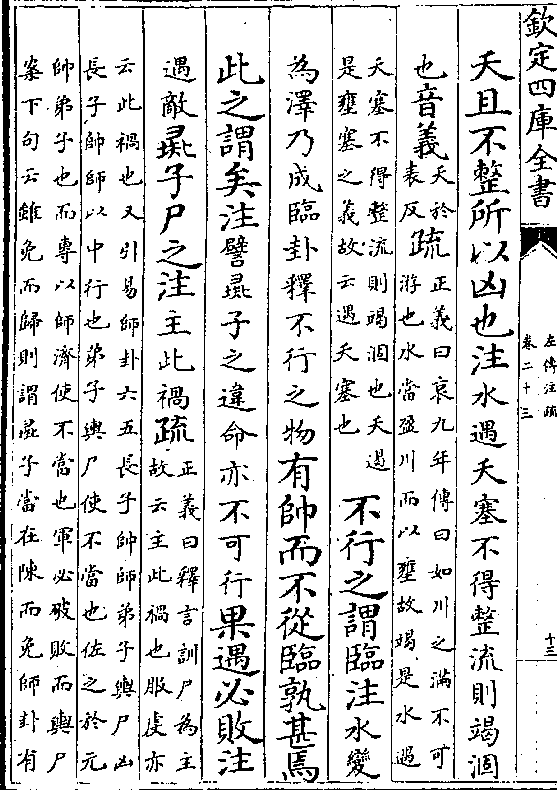 欽定四庫全書
左傳注疏
卷二十三
十三
夭且不整所以凶也注水遇夭塞不得整流則竭涸
也音義夭於
表反疏正義曰哀九年傳曰如川之滿不可
游也水當盈川而以壅故竭是水遇
夭塞不得整流則竭涸也夭遏
是壅塞之義故云遇夭塞也
不行之謂臨注水變
為澤乃成臨卦釋不行之物有帥而不從臨孰甚焉
此之謂矣注譬彘子之違命亦不可行果遇必敗注
遇敵彘子尸之注主此禍疏正義曰釋言訓尸為主
故云主此禍也服虔亦
云此禍也又引易師卦六五長子帥師弟子輿尸凶
長子帥師以中行也弟子輿尸使不當也佐之於元
帥弟子也而專以師濟使不當也軍必破敗而輿尸
案下句云雖免而歸則謂彘子當在陳而免師卦有